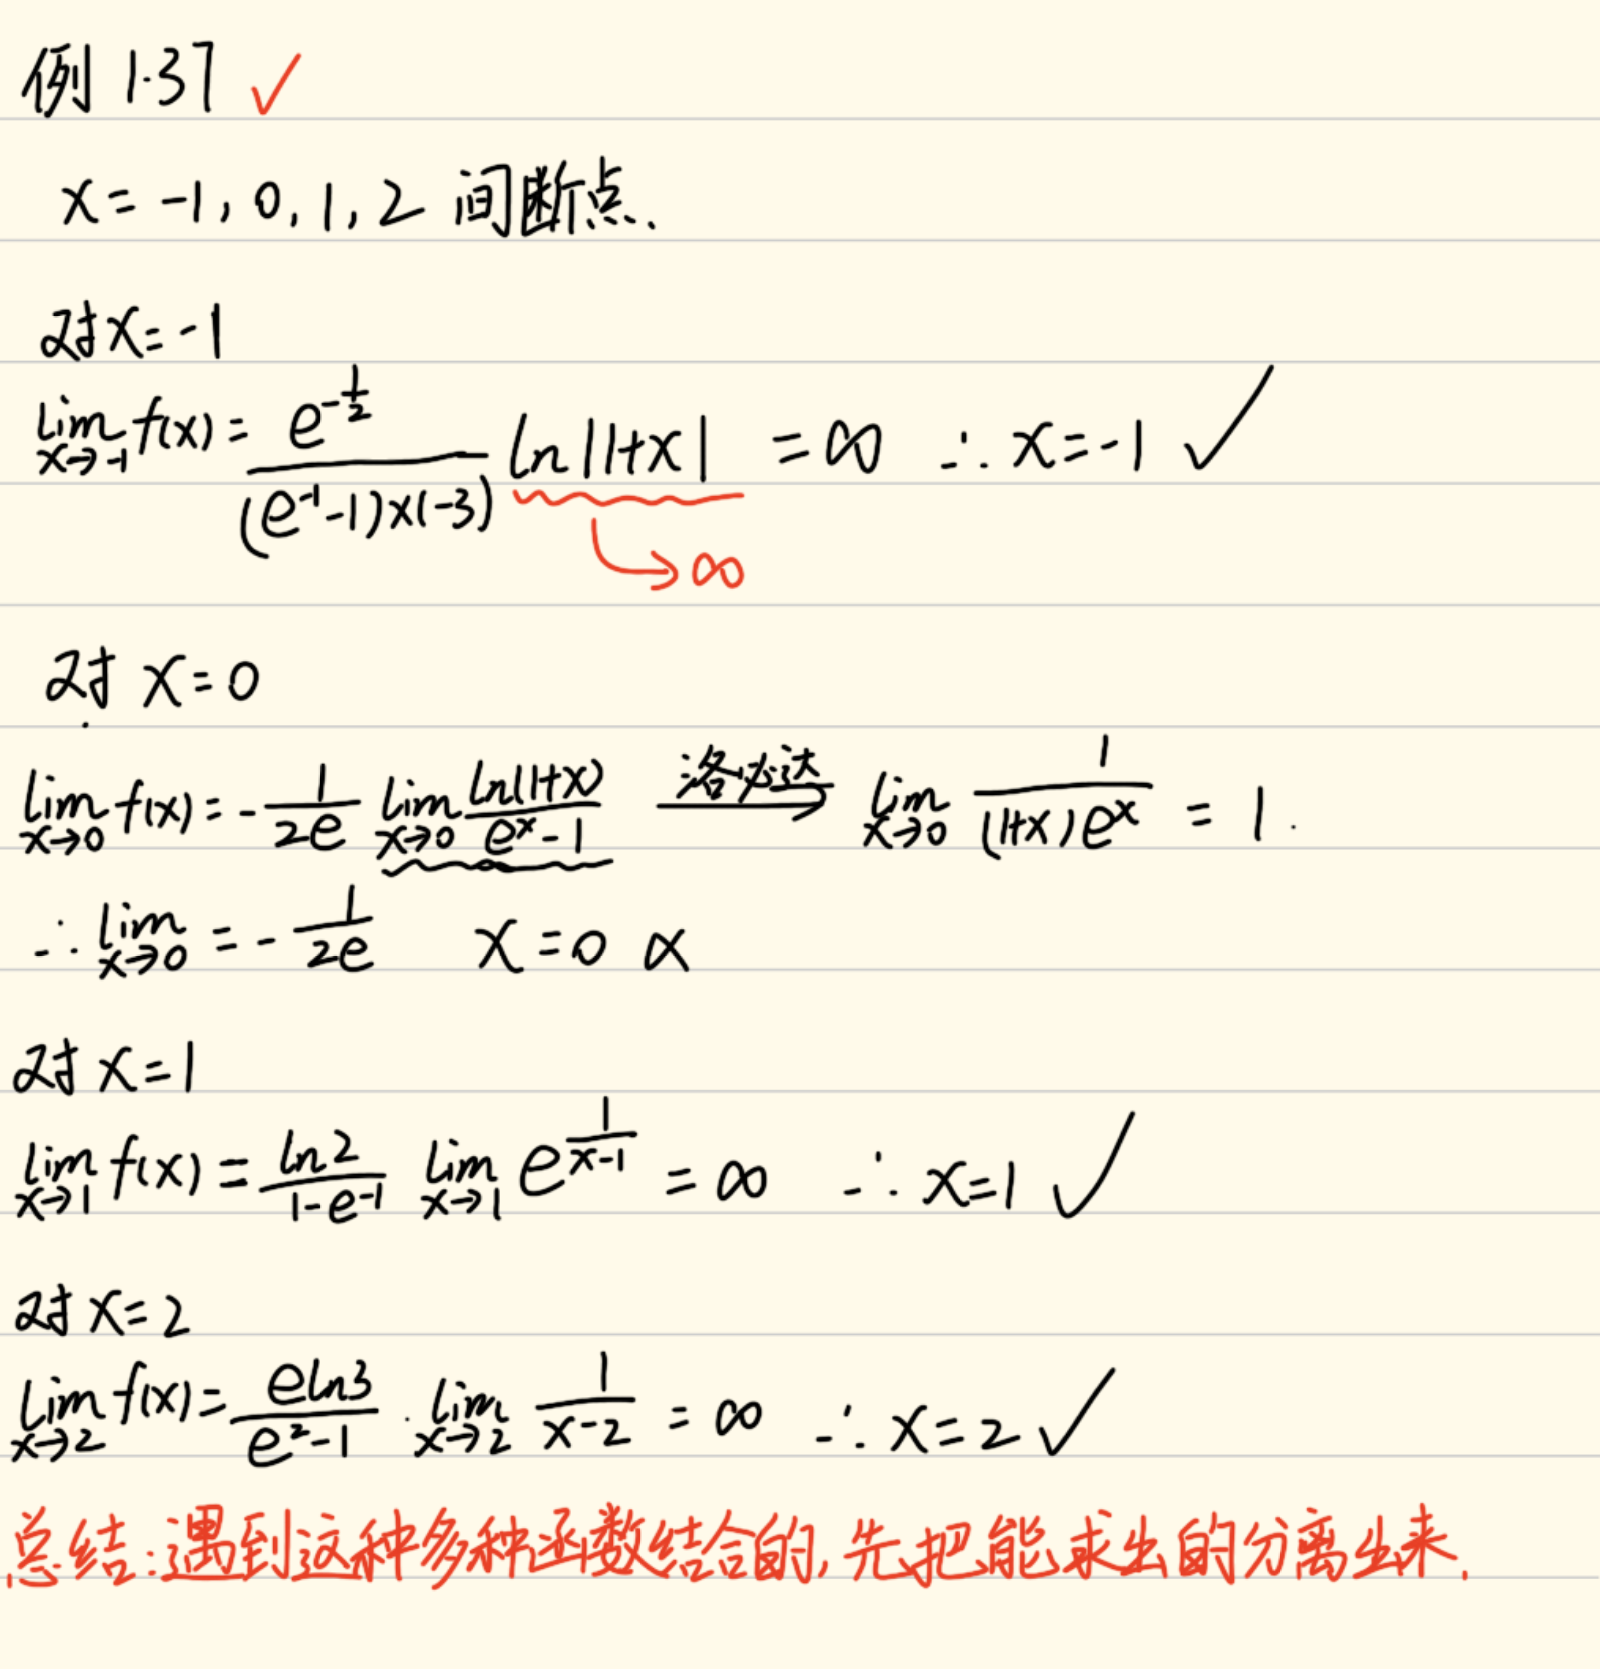 例 1.37 ✓
x = -1, 0, 1, 2 间断点.
对x=-1
lim_{x→-1} f(x) = \frac{e^{-\frac{1}{2}}}{(e^{-1}-1)×(-3)} ln|1+x| = ∞ ∴ x=-1 ✓
→∞
对 x=0
lim_{x→0} f(x) = -\frac{1}{2e} lim_{x→0} \frac{ln(1+x)}{e^x-1} 洛必达 → lim_{x→0} \frac{1}{(1+x)e^x} = 1.
∴ lim_{x→0} = -\frac{1}{2e} x=0 ×
对 x=1
lim_{x→1} f(x) = \frac{ln2}{1-e^{-1}} lim_{x→1} e^{\frac{1}{x-1}} = ∞ ∴ x=1 ✓
对 x=2
lim_{x→2} f(x) = \frac{eln3}{e^2-1} · lim_{x→2} \frac{1}{x-2} = ∞ ∴ x=2 ✓
总结:遇到这种多种函数结合的,先把能求出的分离出来.